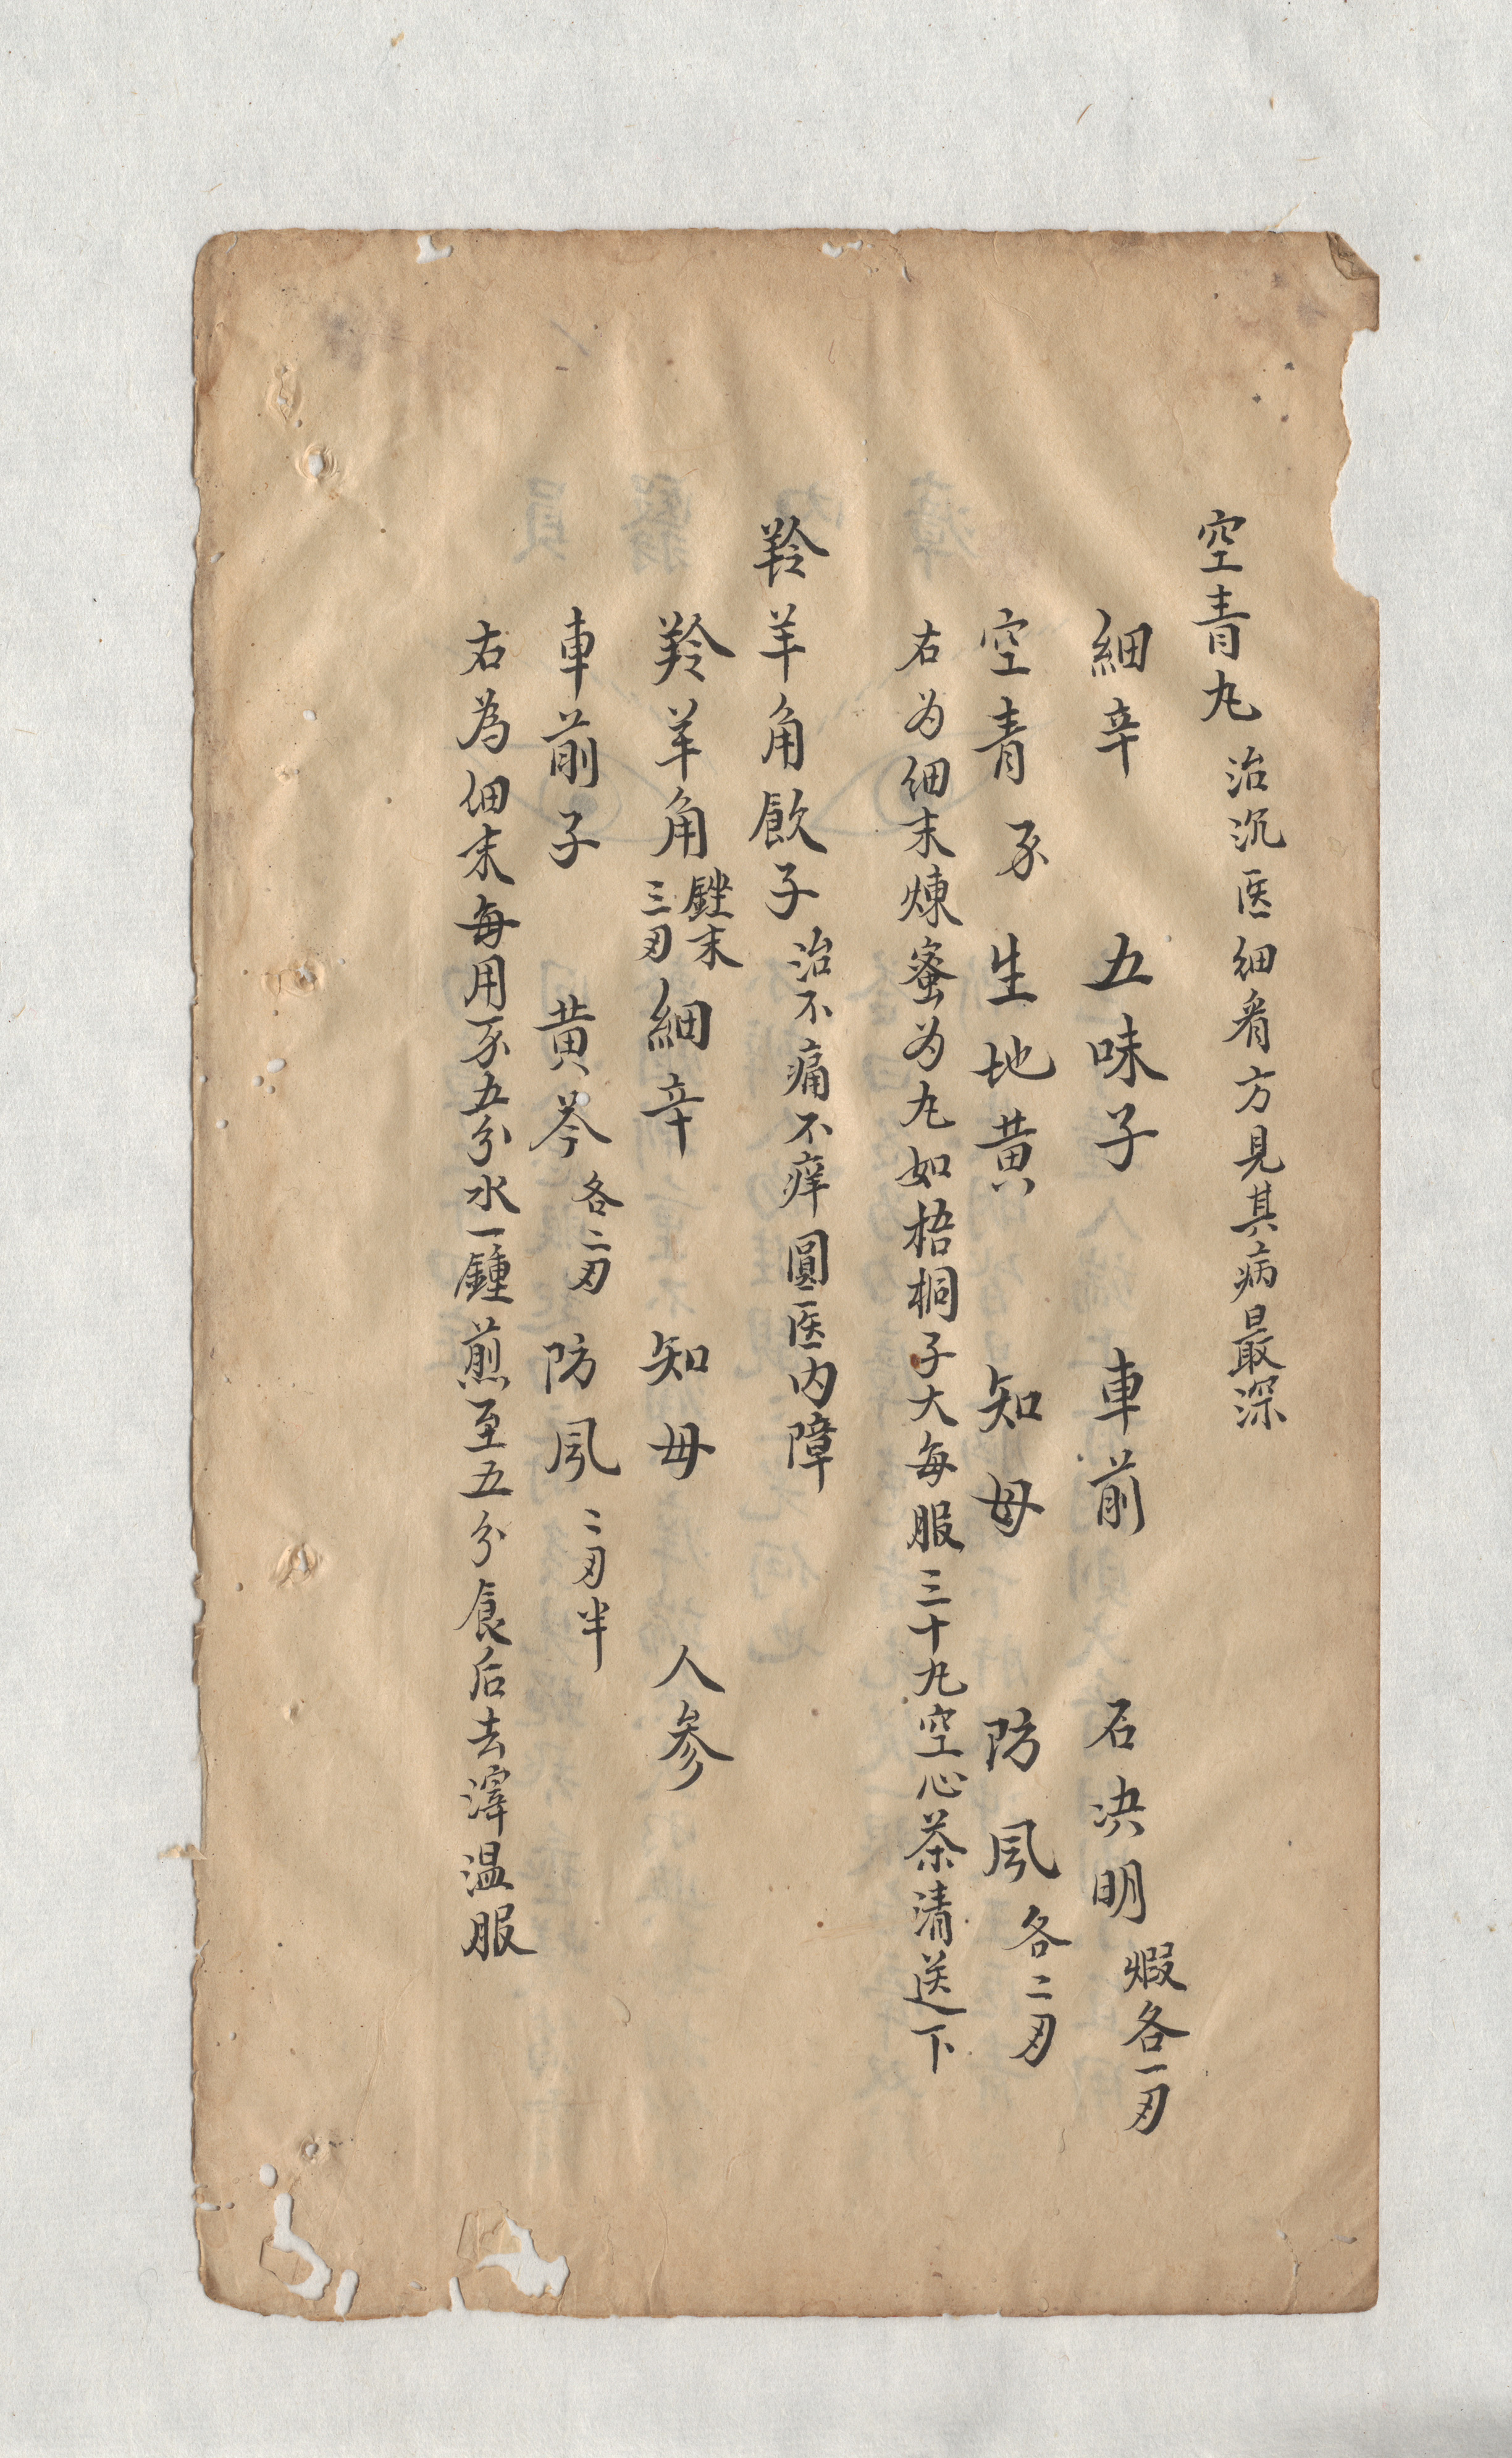 空青丸 治沉医细看方見其病最深
細辛 五味子 車前 石决明 煆各一刄
空青 生地黄 知母 防风 各二刄
右为细末煉蜜为丸如梧桐子大每服三十丸空心茶清送下
羚羊角飲子 治不痛不痒圓医内障
羚羊角 鏗末三刄 細辛 知母 人参
車前子 黄芩 各二刄 防风 二刄半
右為细末每用五分水一鍾煎至五分食后去滓温服